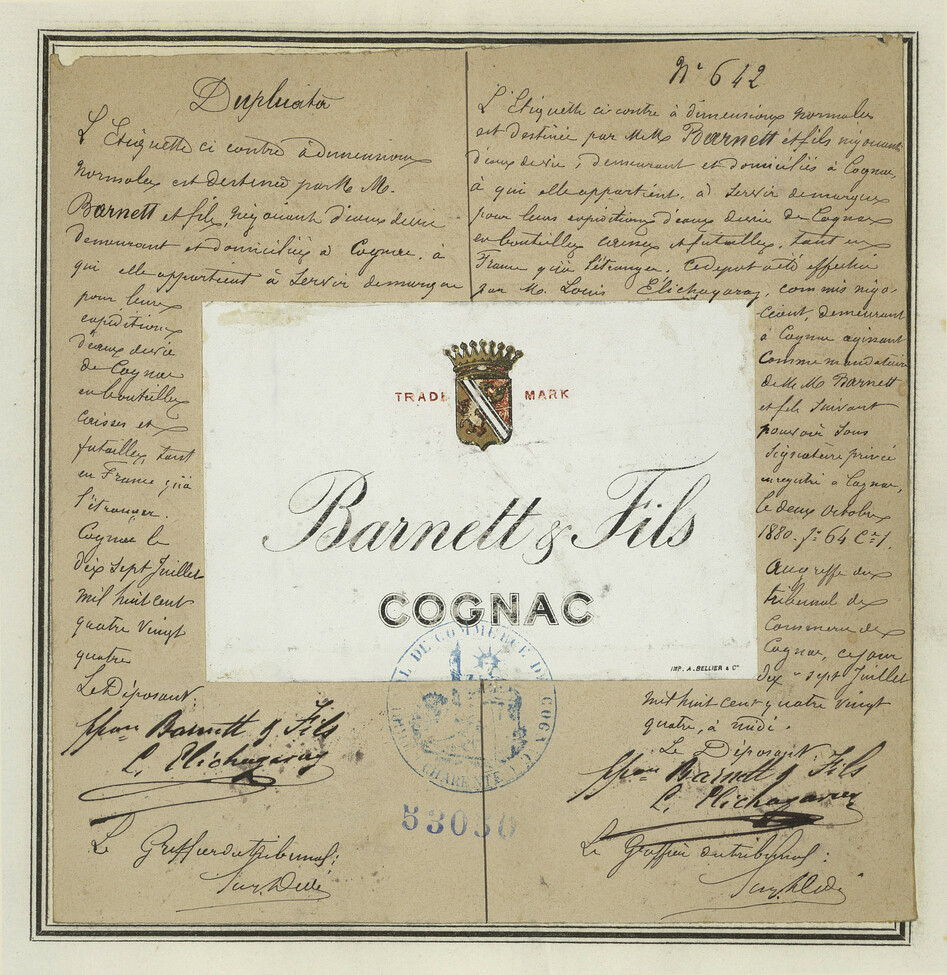 Duplicata
L'Etiquette ci contre à dimensions
normales est destinée par M. M.
Barnett et fils, négociant d'eaux de vie
demeurant et domiciliés à Cognac, à
qui elle appartient à servir de marque
pour leurs
expéditions
d'eaux de vie
de Cognac
en bouteilles
caisses et
futailles, tant
en France qu'à
l'étranger.
Cognac le
dix sept Juillet
mil huit cent
quatre vingt
quatre
Le Déposant:
Barnett & Fils
L. Elichagaray
Le Greffier du Tribunal:
N° 642
L'Etiquette ci contre à dimensions normales
est destinée par M.M. Barnett et fils négociant
d'eaux de vie, demeurant et domiciliés à Cognac,
à qui elle appartient, à servir de marque
pour leurs expéditions d'eaux de vie de Cognac
en bouteilles caisses et futailles, tant en
France qu'à l'étranger. Ce depot a été effectué
par M. Louis Elichagaray, commis négo-
ciant, demeurant
à Cognac agissant
comme mandataire
de M. M. Barnett
et fils suivant
pouvoir sous
signature privée
enregistré à Cognac,
le deux Octobre
1880. f° 64 C° 1.
Au greffe du
tribunal de
Commerce de
Cognac, ce jour
dix-sept Juillet
mil huit cent quatre vingt
quatre, à midi.
Le Déposant
Barnett & Fils
L. Elichagaray
Le Greffier du tribunal:
TRADE MARK
Barnett & Fils
COGNAC
IMP. A. BELLIER & Cie
TRIBUNAL DE COMMERCE DE COGNAC
CHARENTE
53030